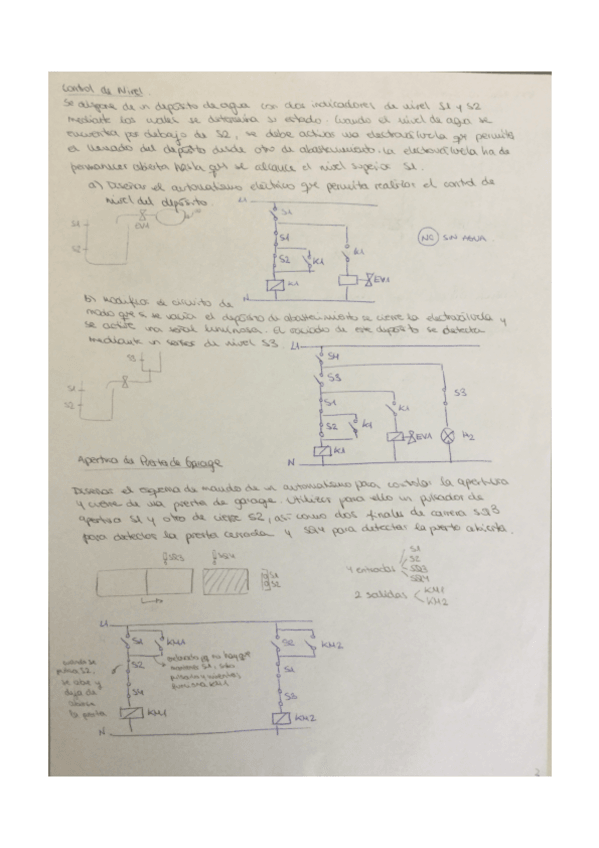 Control de Nivel.
Se dispone de un depósito de agua con dos indicadores de nivel S1 y S2
mediante los cuales se determina su estado. Cuando el nivel de agua se
encuentra por debajo de S2, se debe activar una electroválvula que permita
el llenado del depósito desde otro de abastecimiento. La electroválvula ha de
permanecer abierta hasta que se alcance el nivel superior S1.
a) Diseñar el automatismo eléctrico que permita realizar el control de
nivel del depósito.
L1
S1
S2
EV1
S1
S2
K1
K1
K1
EV1
N
NC SIN AGUA
b) Modificar el circuito de
modo que si se vacía el depósito de abastecimiento se cierre la electroválvula y
se active una señal luminosa. El vaciado de este depósito se detecta
mediante un sensor de nivel S3.
L1
S3
S1
S2
S3
S1
S2
K1
K1
K1
EV1
S3
H2
N
Apertura de Puerta de Garage
Diseñar el esquema de mando de un automatismo para controlar la apertura
y cierre de una puerta de garage. Utilizar para ello un pulsador de
apertura S1 y otro de cierre S2, así como dos finales de carrera SQ3
para detectar la puerta cerrada y SQ4 para detectar la puerta abierta.
SQ3
SQ4
S1
S2
4 entradas
S1
S2
SQ3
SQ4
2 salidas
KM1
KM2
L1
S1
KM1
S2
S4
KM1
cuando se
pulsa S2,
se abre y
deja de
abrirse
la puerta
S2
KM2
S1
S3
KM2
N
2